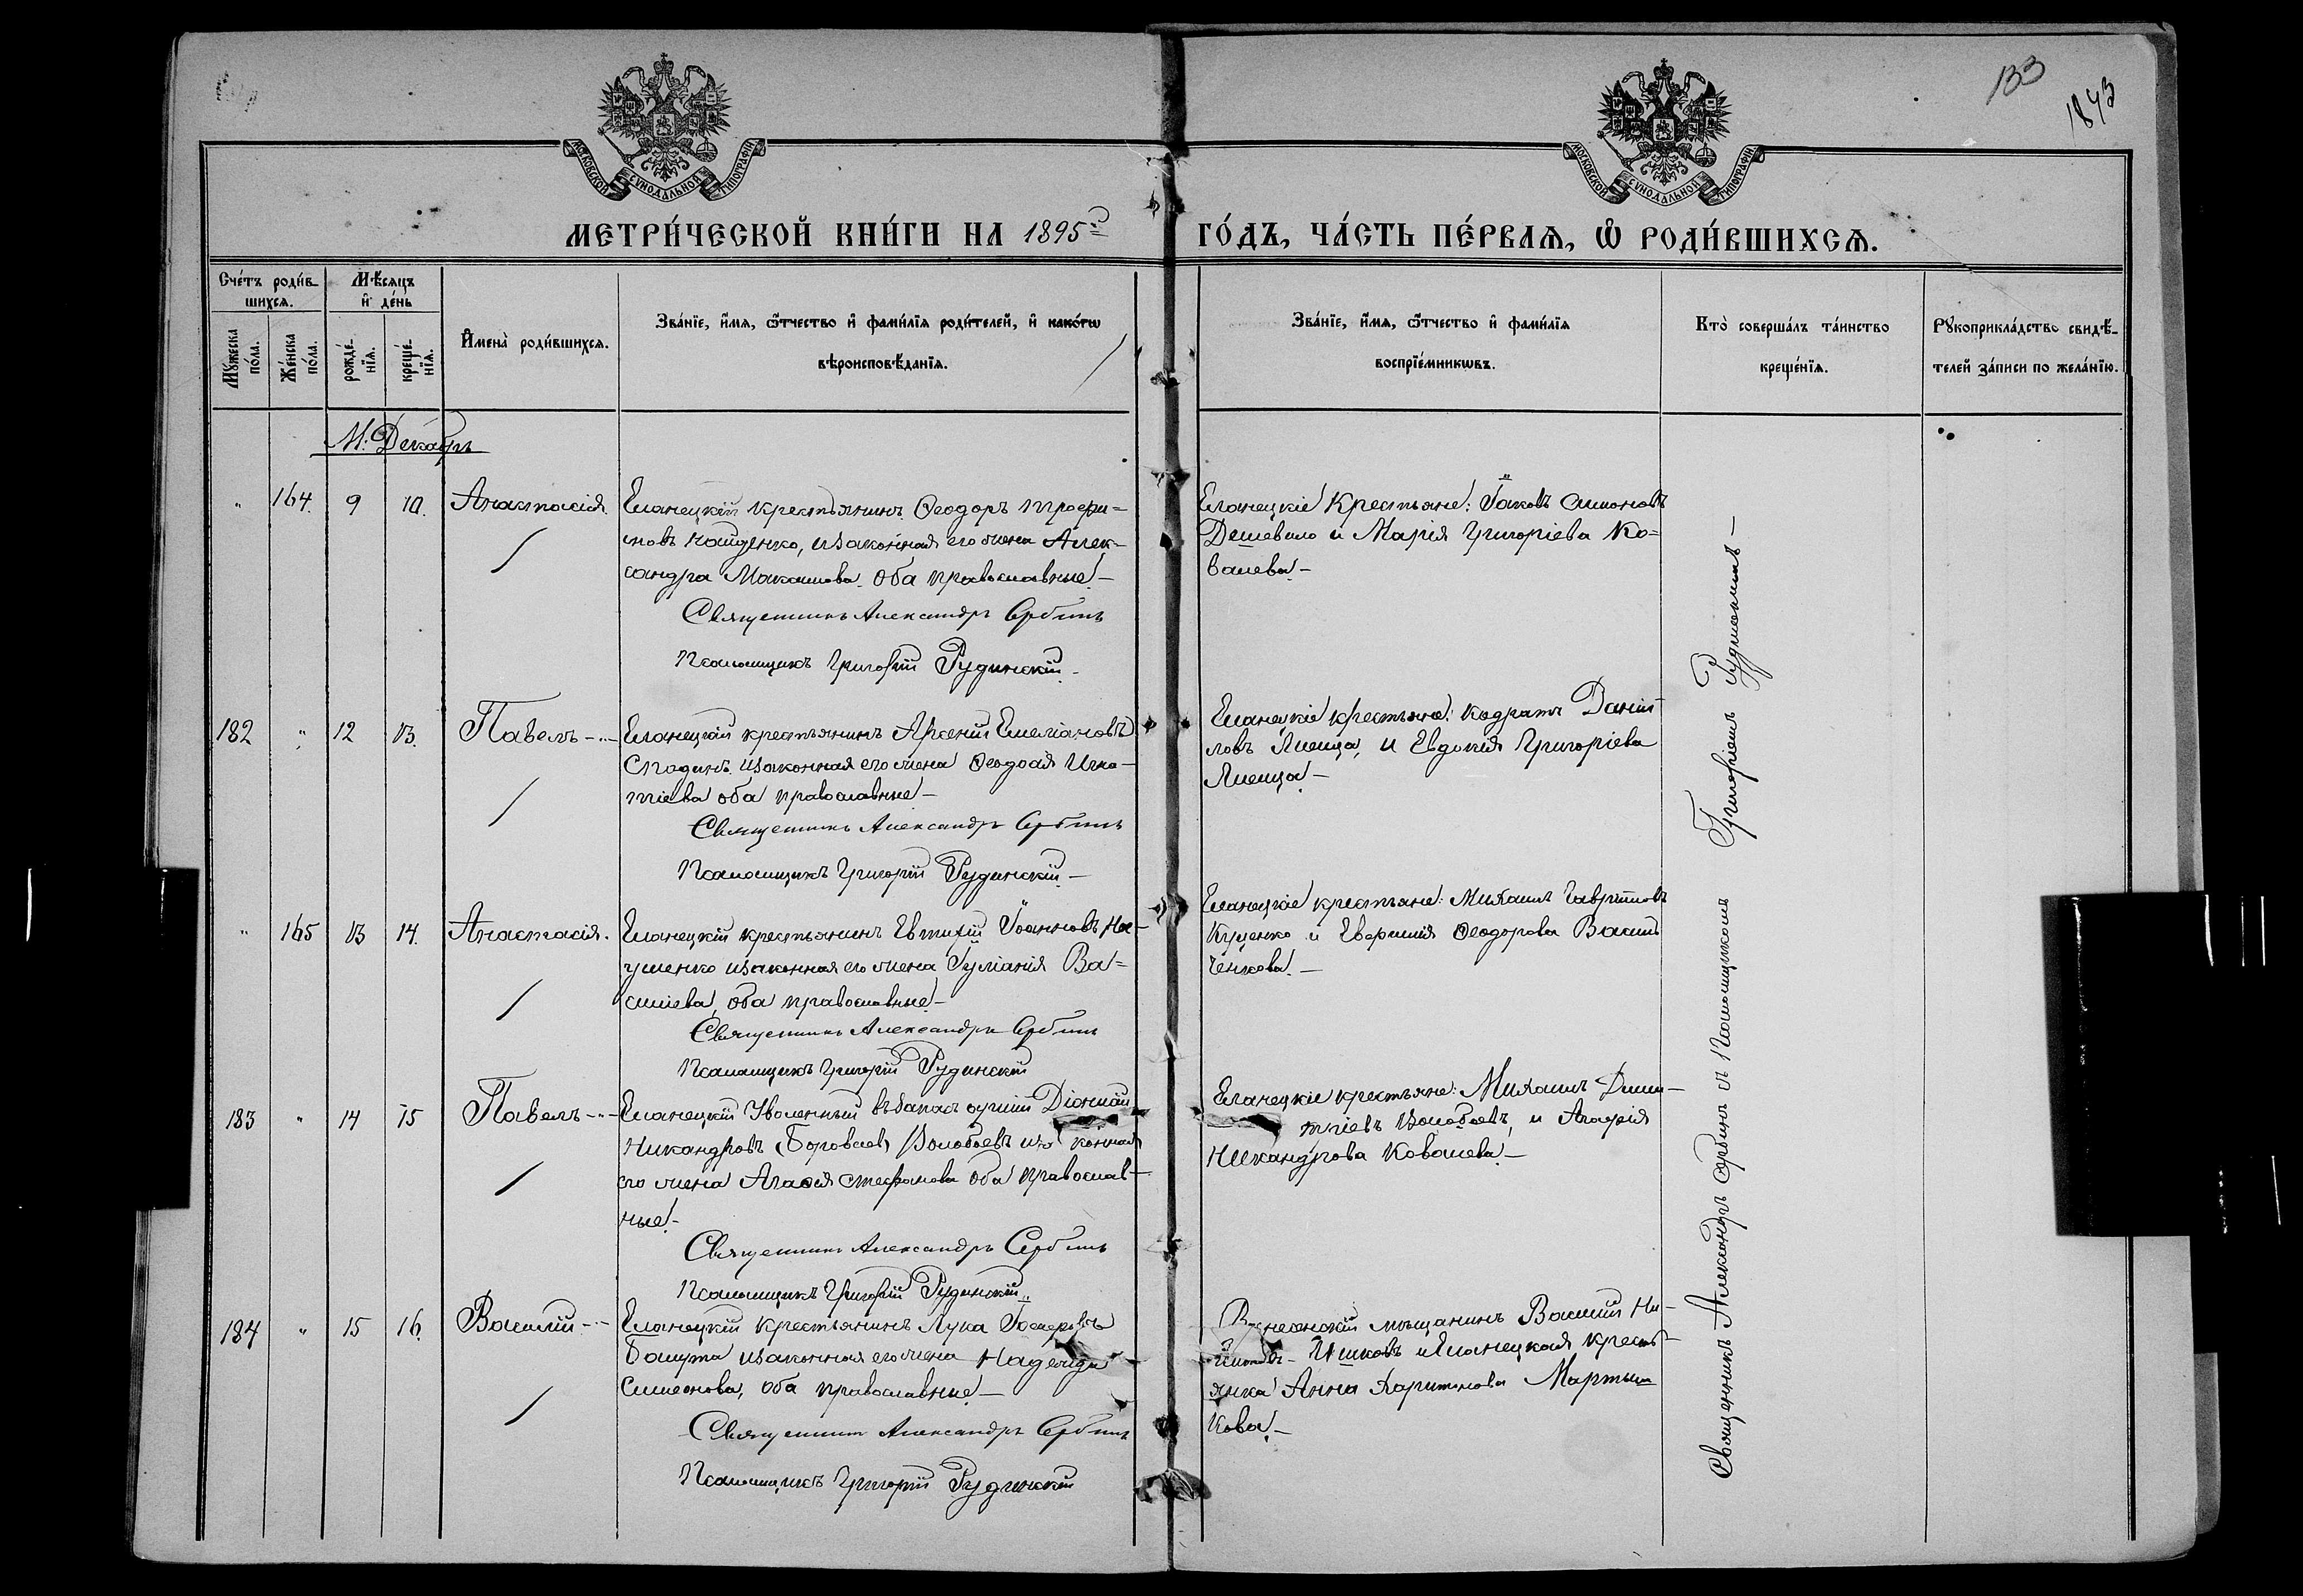 133
1843
МОСКОВСКОЙ СУНОДАЛЬНОЙ ТИПОГРАФІИ
МОСКОВСКОЙ СУНОДАЛЬНОЙ ТИПОГРАФІИ
МЕТРИ́ЧЕСКОЙ КНИ́ГИ НА 1895й ГО́ДЪ, ЧА́СТЬ ПЕ́РВАѦ, Ѡ РОДИ́ВШИХСѦ.
Сче́тъ роди́в-
шихсѧ.
Мѣ́сѧцъ
и де́нь
Мꙋ́жеска по́ла.
Же́нска по́ла.
рожде́-
нїѧ.
креще́-
нїѧ.
И҆мена̀ роди́вшихсѧ.
Зва́нїе, и҆́мѧ, ѻ҆́тчество и҆ фами́лїѧ роди́телей, и҆ како́гѡ
вѣроисповѣ́данїѧ.
Зва́нїе, и҆́мѧ, ѻ҆́тчество и҆ фами́лїѧ
воспрїе́мникѡвъ.
Кто̀ соверша́лъ та́инство
креще́нїѧ.
Рꙋкоприкла́дство свидѣ́-
телей за́писи по жела́нїю.
М: Декабрь
" 164. 9 10. Анастасія.
Еланецкій крестьянинъ Ѳеодоръ Трофи=
мовъ Найденко, и законная его жена Алек-
сандра Максимова. Оба православные. -
Священникъ Александръ Сербинъ
Псаломщикъ Григорій Рудинскій. -
Еланецкіе крестьяне: Іаковъ Симоновъ
Дешевило и Марія Григоріева Ко=
валева. -
182 " 12 13. Павелъ - " -
Еланецкій крестьянинъ Арсеній Емеліановъ
законная его жена Ѳеодосія Игна-
тіева оба православные -
Священникъ Александръ Сербинъ
Псаломщикъ Григорій Рудинскій. -
Еланецкіе крестьяне: Кодратъ Даніи-
ловъ и Евдокія Григоріева
" 165 13 14. Анастасія.
Еланецкій крестьянинъ Евтихій Іоанновъ
законная его жена Іуліанія Ва=
силіева, оба православные -
Священникъ Александръ Сербинъ
Псаломщикъ Григорій Рудинскій
Еланецкіе крестьяне: Михаилъ Гавріиловъ
Куценко и Евфимія Ѳеодорова Василь
ченкова. -
183 " 14 15 Павелъ - " -
Еланецкій Уволенный въ запасъ арміи Діонисій
Никандровъ Волобоевъ и законная
его жена Агафія Стефанова оба православ-
ные. -
Священникъ Александръ Сербинъ
Псаломщикъ Григорій Рудинскій
Еланецкіе крестьяне: Михаилъ Дими-
тріевъ Волобоевъ, и Агафія
Никандрова Ковалева. -
184 " 15 16. Василій - " -
Еланецкій крестьянинъ Лука
законная его жена Надежда
Симеонова, оба православные. -
Священникъ Александръ Сербинъ
Псаломщикъ Григорій Рудинскій
Вознесенскій мѣщанинъ Василій Ни-
Ишковъ и Еланецкая кресть-
янка Анна Харитонова Мартын
кова. -
Священникъ Александръ Сербинъ съ Псаломщикомъ Григоріемъ Рудинскимъ -